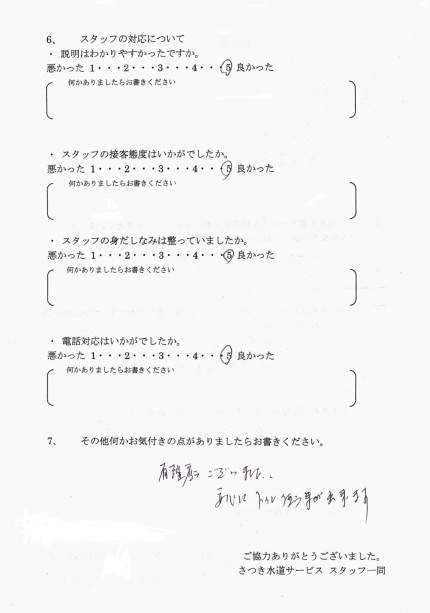 6、 スタッフの対応について
・ 説明はわかりやすかったですか。
悪かった 1・・・2・・・3・・・4・・・5 良かった
何かありましたらお書きください
・ スタッフの接客態度はいかがでしたか。
悪かった 1・・・2・・・3・・・4・・・5 良かった
何かありましたらお書きください
・ スタッフの身だしなみは整っていましたか。
悪かった 1・・・2・・・3・・・4・・・5 良かった
何かありましたらお書きください
・ 電話対応はいかがでしたか。
悪かった 1・・・2・・・3・・・4・・・5 良かった
何かありましたらお書きください
7、 その他何かお気付きの点がありましたらお書きください。
有難うございました。
安心してトイレ使う事が出来ます
ご協力ありがとうございました。
さつき水道サービス スタッフ一同